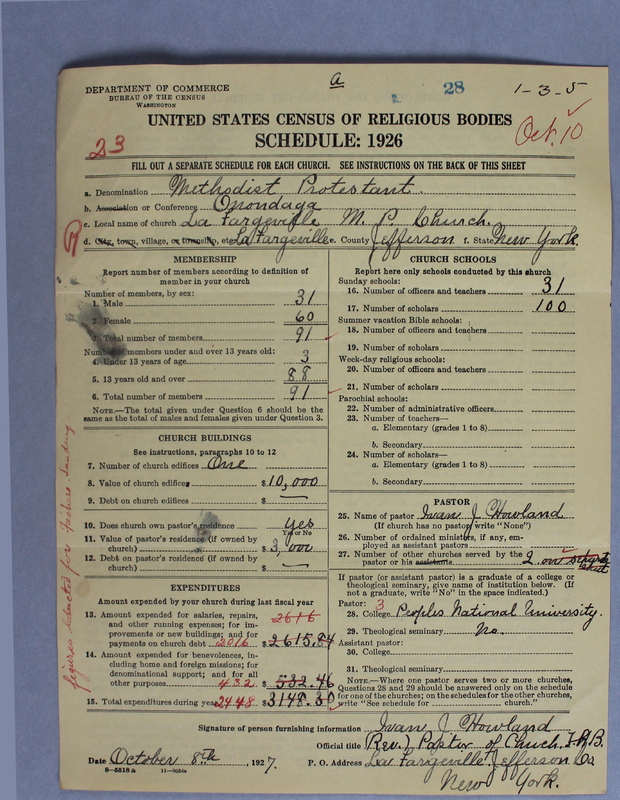 a
DEPARTMENT OF COMMERCE
BUREAU OF THE CENSUS
WASHINGTON
28
1-3-5
UNITED STATES CENSUS OF RELIGIOUS BODIES
SCHEDULE: 1926
23
Oct. 10
FILL OUT A SEPARATE SCHEDULE FOR EACH CHURCH. SEE INSTRUCTIONS ON THE BACK OF THIS SHEET
a. Denomination Methodist Protestant.
b. Association or Conference Onondaga
c. Local name of church La Fargeville M. P. Church.
d. City, town, village, or township, etc. La Fargeville e. County Jefferson f. State New York.
MEMBERSHIP
Report number of members according to definition of
member in your church
Number of members, by sex:
1. Male 31
2. Female 60
3. Total number of members 91
Number of members under and over 13 years old:
4. Under 13 years of age 3
5. 13 years old and over 88
6. Total number of members 91
NOTE.—The total given under Question 6 should be the
same as the total of males and females given under Question 3.
CHURCH BUILDINGS
See instructions, paragraphs 10 to 12
7. Number of church edifices One
8. Value of church edifices $10,000
9. Debt on church edifices $ —
10. Does church own pastor's residence yes
Yes or No
11. Value of pastor's residence (if owned by
church) $3,000
12. Debt on pastor's residence (if owned by
church) $ —
EXPENDITURES
Amount expended by your church during last fiscal year
13. Amount expended for salaries, repairs, 2616
and other running expenses; for im-
provements or new buildings; and for
payments on church debt 2016 $2615.84
14. Amount expended for benevolences, in-
cluding home and foreign missions; for
denominational support; and for all
other purposes 432 $532.46
15. Total expenditures during year 2448 $3148.30
CHURCH SCHOOLS
Report here only schools conducted by this church
Sunday schools:
16. Number of officers and teachers 31
17. Number of scholars 100
Summer vacation Bible schools:
18. Number of officers and teachers
19. Number of scholars
Week-day religious schools:
20. Number of officers and teachers
21. Number of scholars
Parochial schools:
22. Number of administrative officers
23. Number of teachers—
a. Elementary (grades 1 to 8)
b. Secondary
24. Number of scholars—
a. Elementary (grades 1 to 8)
b. Secondary
PASTOR
25. Name of pastor Ivan J Howland
(If church has no pastor, write "None")
26. Number of ordained ministers, if any, em-
ployed as assistant pastors
27. Number of other churches served by the
pastor or his assistants 2 on
If pastor (or assistant pastor) is a graduate of a college or
theological seminary, give name of institution below. (If
not a graduate, write "No" in the space indicated.)
Pastor: 3
28. College Peoples National University.
29. Theological seminary No.
Assistant pastor:
30. College
31. Theological seminary
NOTE.—Where one pastor serves two or more churches,
Questions 28 and 29 should be answered only on the schedule
for one of the churches; on the schedules for the other churches,
write "See schedule for church."
figures deducted for
Signature of person furnishing information Ivan J Howland
Official title Rev. Pastor of Church,
Date October 8th, 1927. P. O. Address La Fargeville Jefferson Co
8—5518a 11—9034a New York.